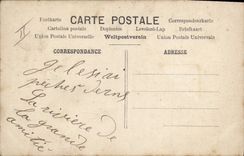 Postkarte CARTE POSTALE Correspondenzkarte
Cartolina postale Dopisnice Levelező-Lap Briefkaart
Union Postale Universelle Weltpostverein Union Postale Universelle
CORRESPONDANCE ADRESSE
Je les ai
pechés dans
La rivière de
la grande
amitié